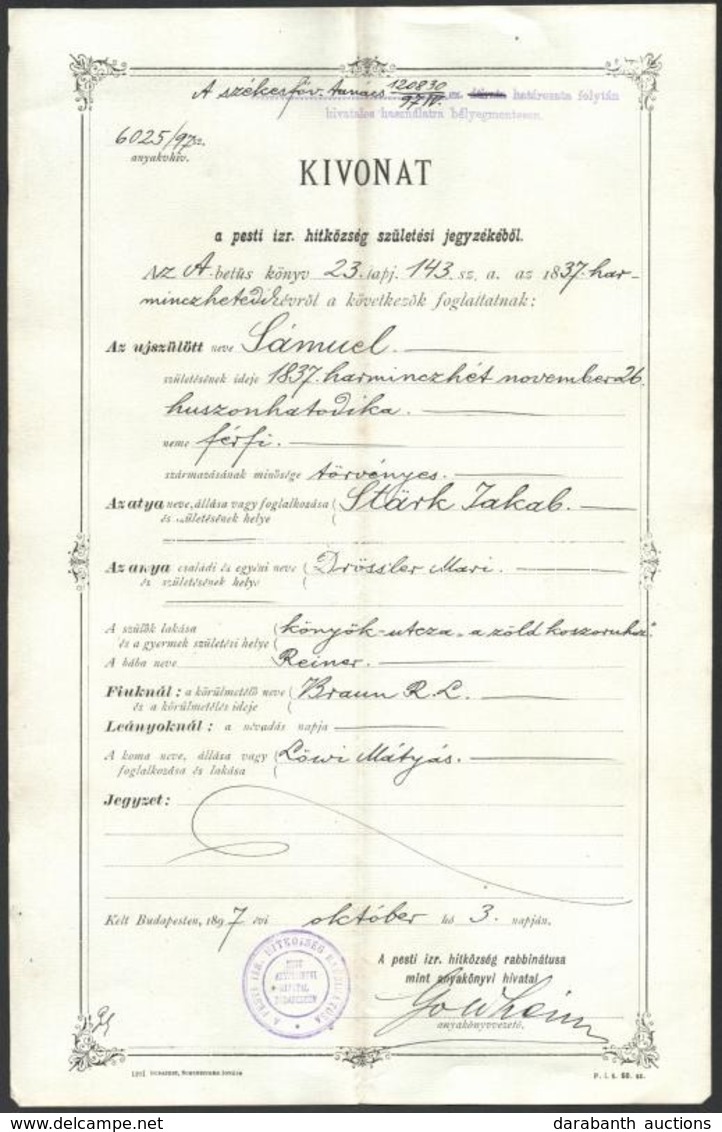 A székesfőv. tanács 120830/97 IV. sz. határozata folytán
hivatalos használatra bélyegmentesen.
6025/97
anyakvhiv.
KIVONAT
a pesti izr. hitközség születési jegyzékéből.
Az A-betüs könyv 23. lapj. 143. sz. a. az 1837. har-
minczhetedik évről a következők foglaltatnak:
Az ujszülött neve Sámuel.
születésének ideje 1837. harminczhét november 26.
huszonhatodika.
neme férfi.
származásának minősége törvényes.
Az atya neve, állása vagy foglalkozása ( Stärk Jakab.
és születésének helye
Az anya családi és egyéni neve ( Drössler Mari.
és születésének helye
A szülők lakása ( könyök-utcza „a zöld koszoruhoz"
és a gyermek születési helye
A bába neve Reiner.
Fiuknál: a körülmetélő neve ( Braun R. L.
és a körülmetélés ideje
Leányoknál: a névadás napja
A koma neve, állása vagy ( Löwi Mátyás.
foglalkozása és lakása
Jegyzet:
Kelt Budapesten, 1897 évi október hó 3. napján.
A pesti izr. hitközség rabbinátusa
mint anyakönyvi hivatal
anyakönyvvezető.
A PESTI IZR. HITKÖZSÉG RABBINATUSA
BUDAPESTEN
P. i. k. 60. sz.
darabanth auctions